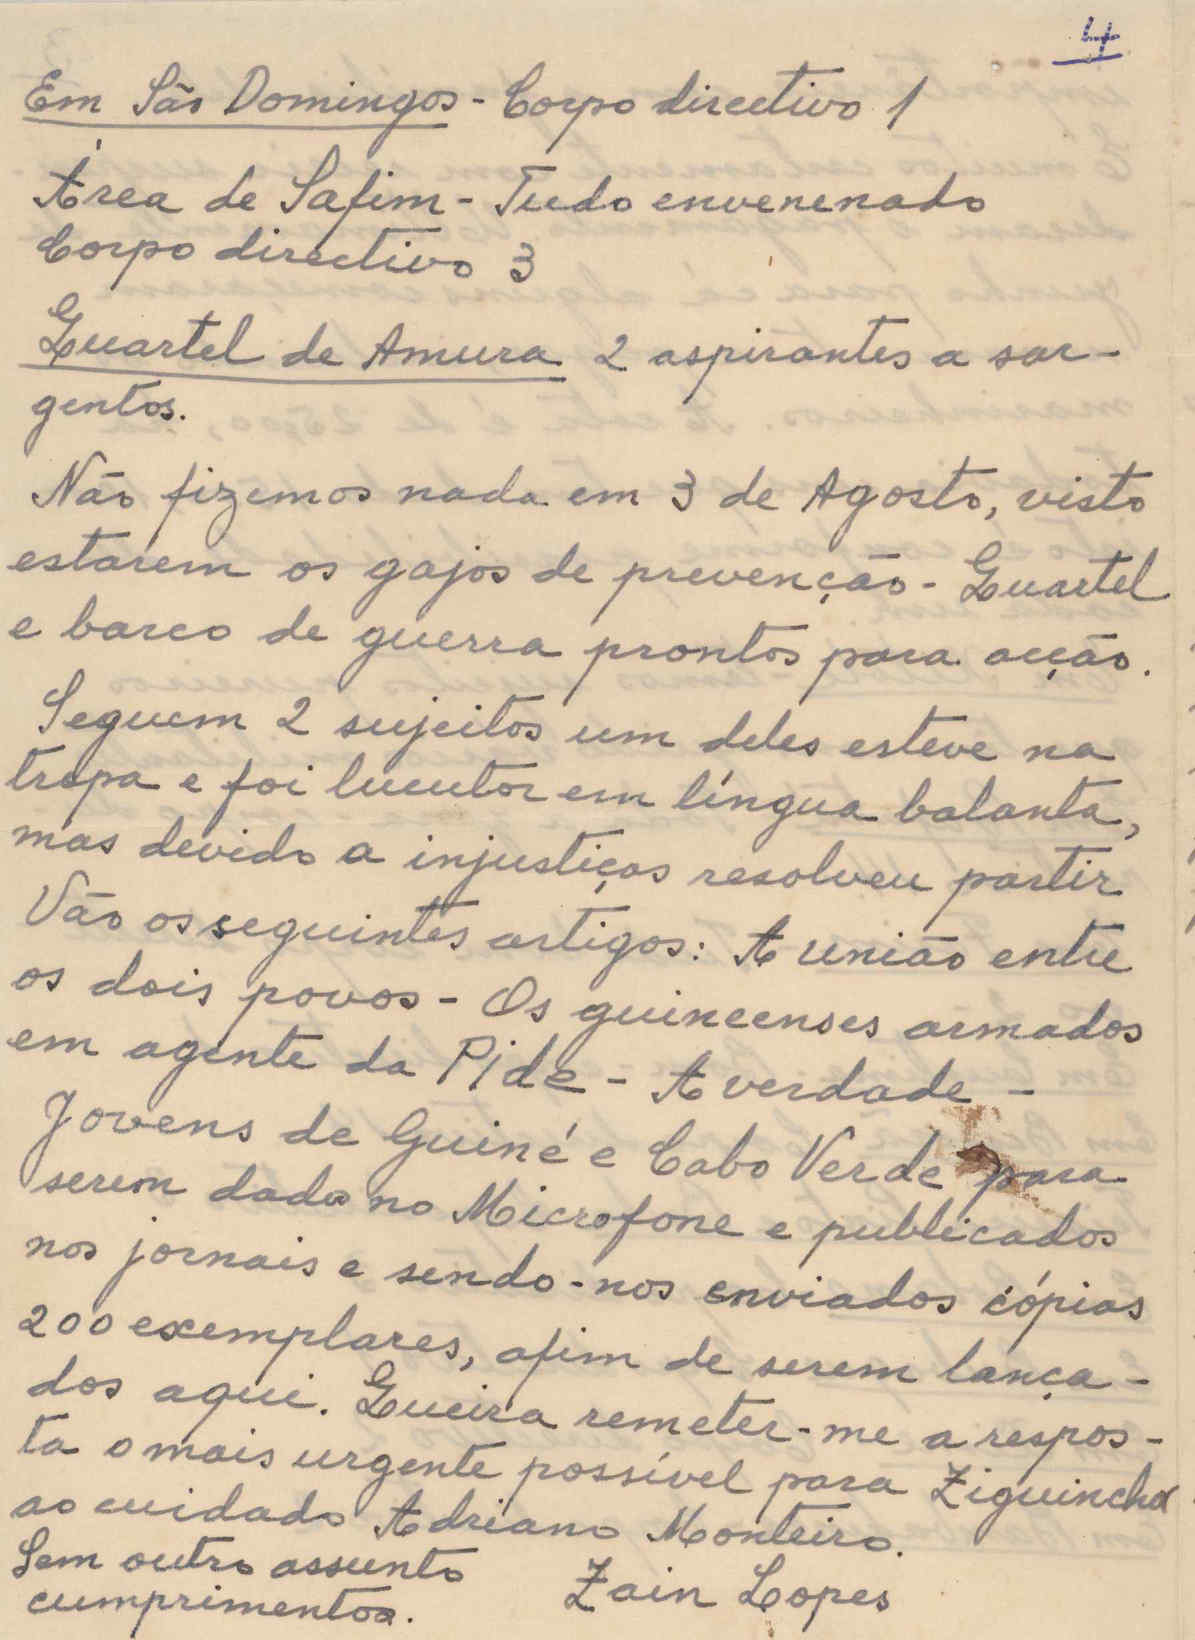 4
Em São Domingos - Corpo directivo 1
Área de Safim - Tudo envenenado
Corpo directivo 3
Quartel de Amura 2 aspirantes a sar-
gentos.
Não fizemos nada em 3 de Agosto, visto
estarem os gajos de prevenção - Quartel
e barco de guerra prontos para acção.
Seguem 2 sujeitos um deles esteve na
tropa e foi lucutor em língua balanta,
mas devido a injustiças resolveu partir
Vão os seguintes artigos: A união entre
os dois povos - Os guineenses armados
em agente da Pide - A verdade -
Jovens de Guiné e Cabo Verde para
serem dada no Microfone e publicados
nos jornais e sendo-nos enviados cópias
200 exemplares, afim de serem lança-
dos aqui. Queira remeter-me a respos-
ta o mais urgente possível para Ziguinchor
ao cuidado Adriano Monteiro.
Sem outro assunto
cumprimentos.
Zain Lopes